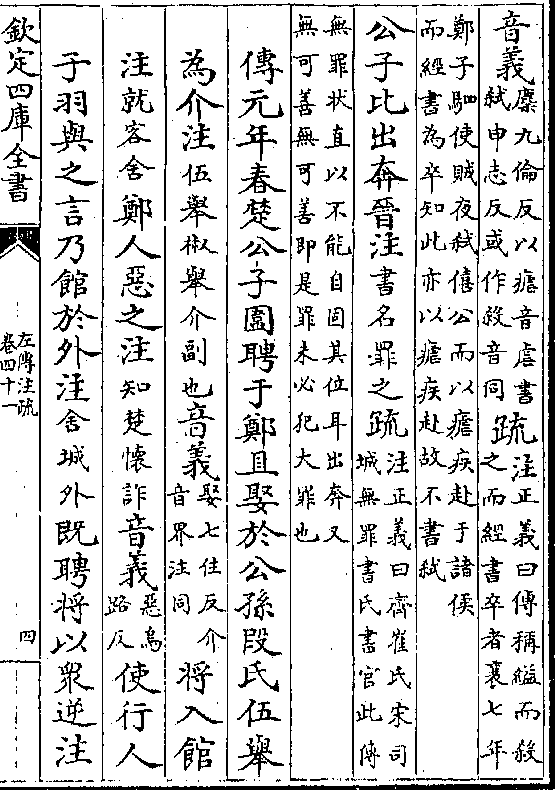 音義麇九倫反以瘧音虐書
弑申志反或作殺音同
疏注正義曰傳稱縊而殺
之而經書卒者襄七年
鄭子駟使賊夜弑僖公而以瘧疾赴于諸侯
而經書為卒知此亦以瘧疾赴故不書弑
公子比出奔晉注書名罪之疏注正義曰齊崔氏宋司
城無罪書氏書官此傳
無罪狀直以不能自固其位耳出奔又
無可善無可善即是罪未必犯大罪也
傳元年春楚公子圍聘于鄭且娶於公孫段氏伍舉
為介注伍舉椒舉介副也音義娶七住反介
音界注同將入館
注就客舍鄭人惡之注知楚懷詐音義惡烏
路反使行人
子羽與之言乃館於外注舍城外既聘將以衆逆注
欽定四庫全書
左傳注疏
卷四十一
四